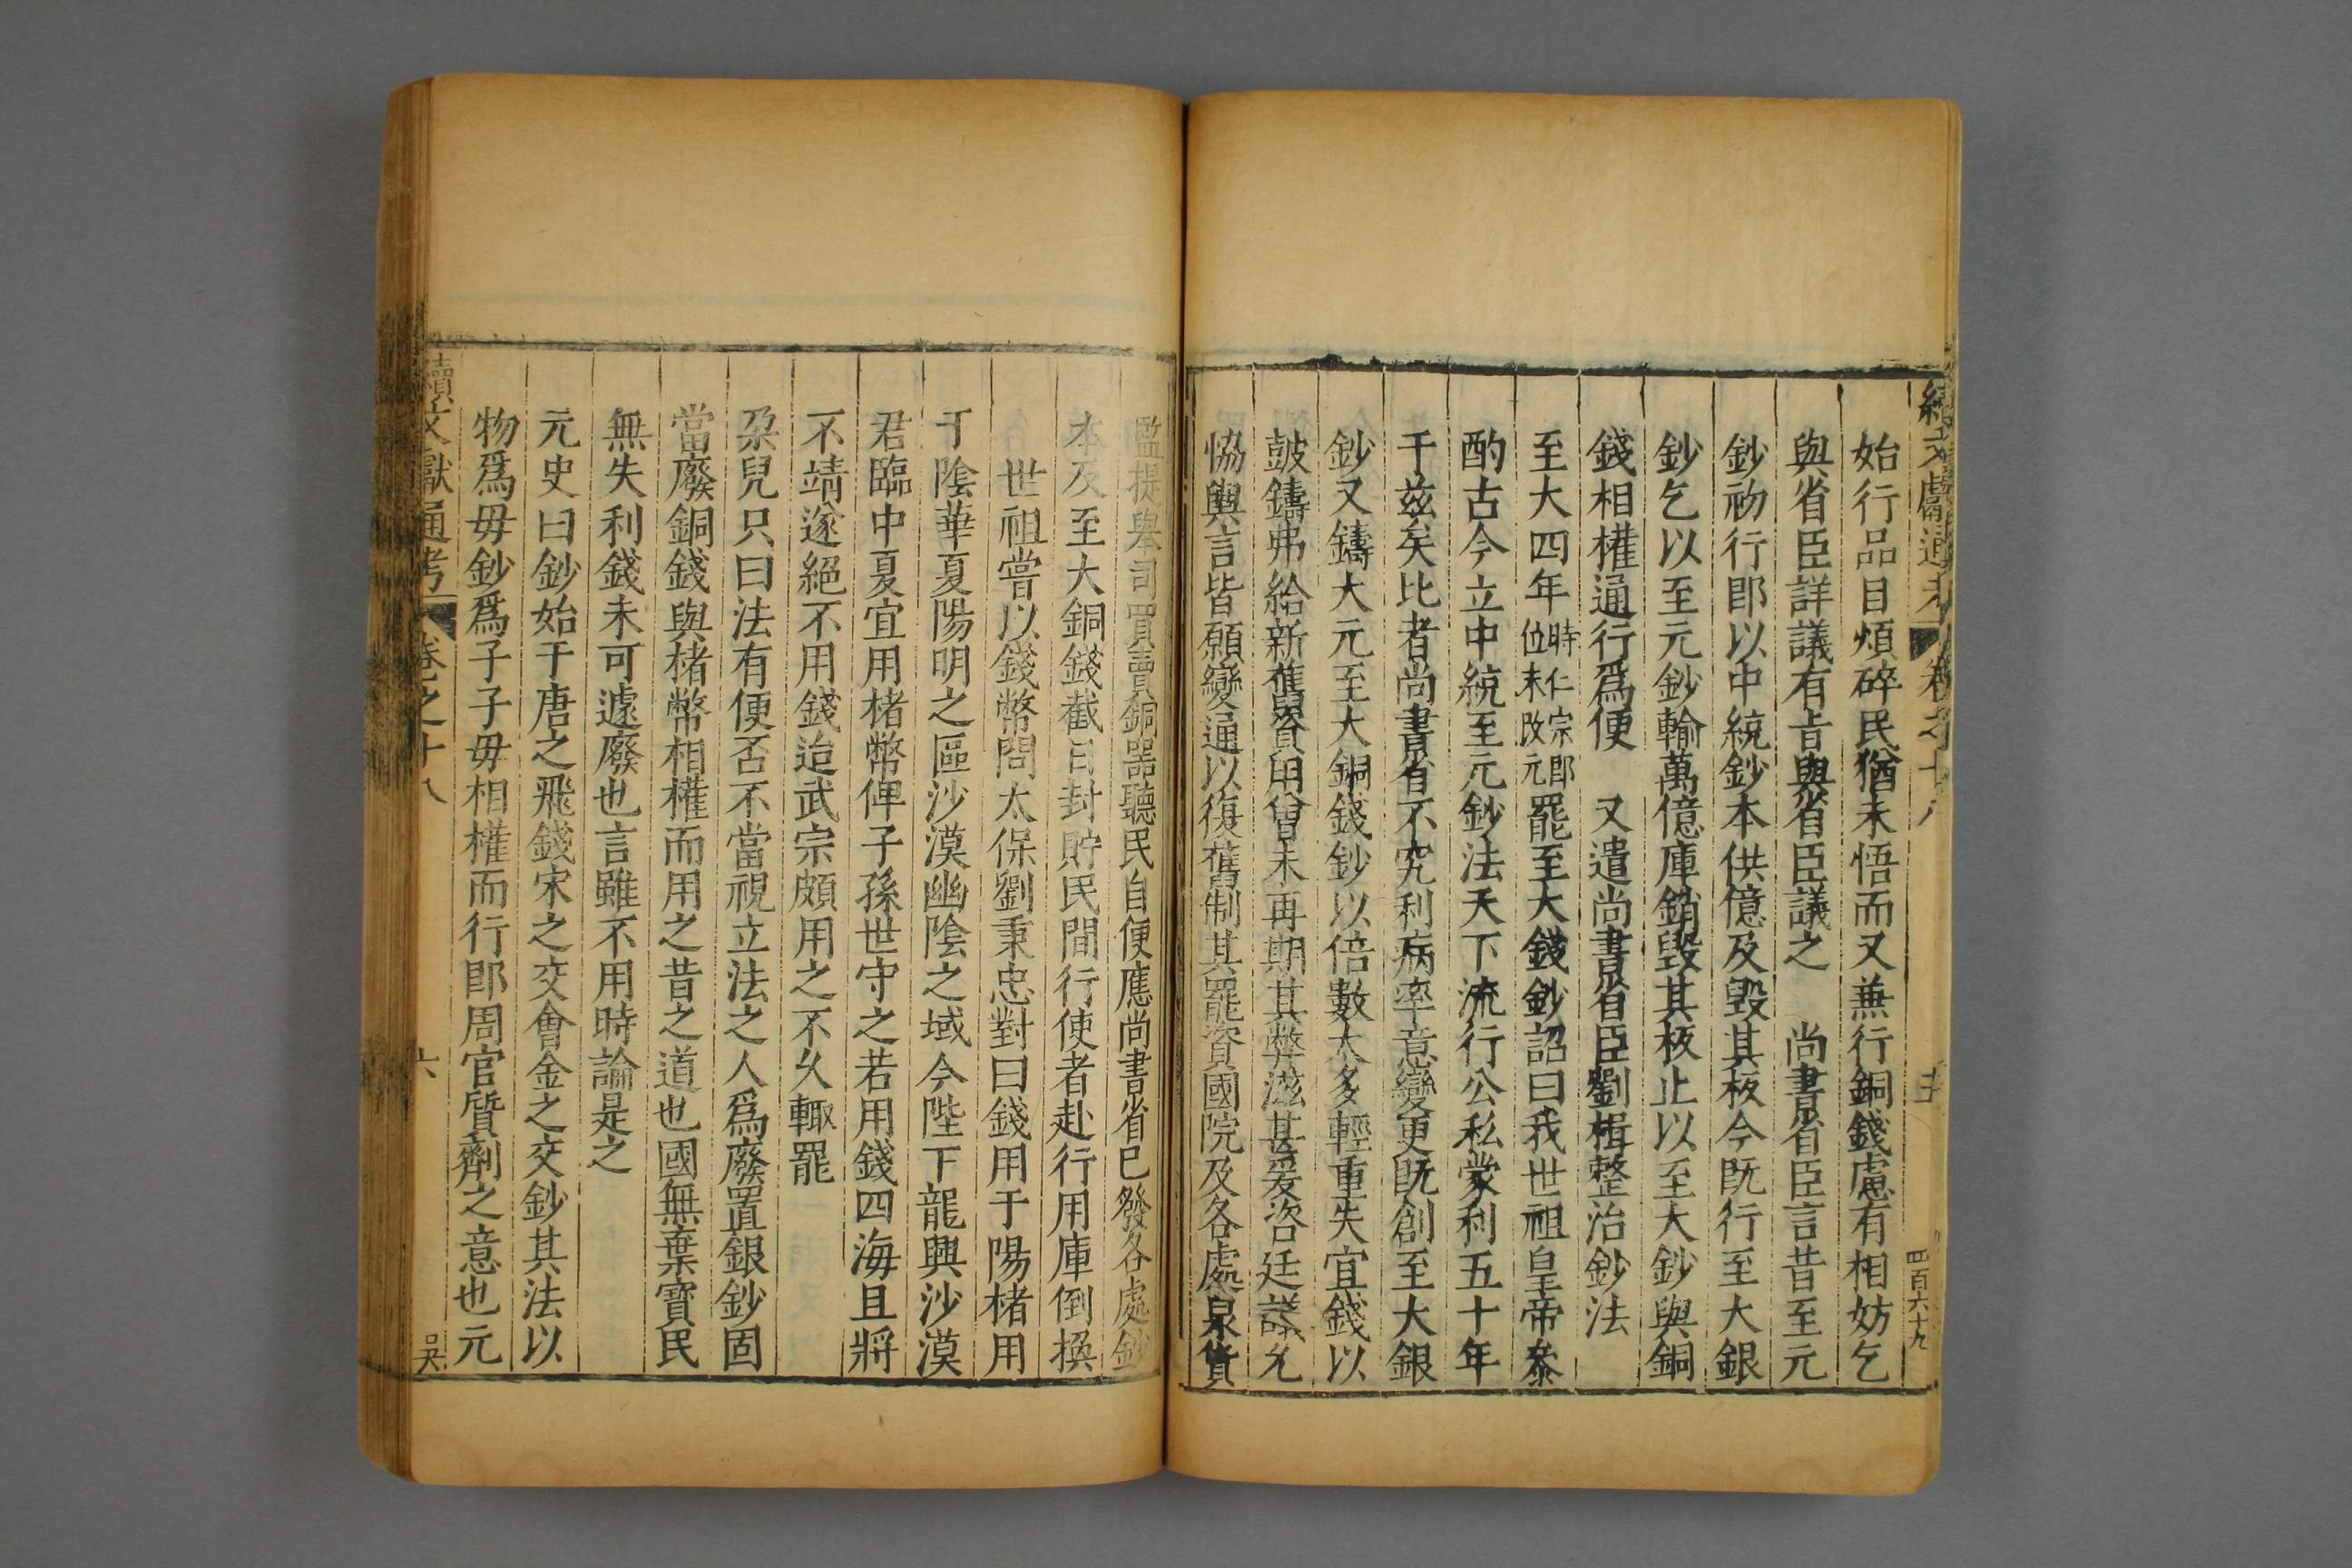 續文獻通考 卷之十八 五 四百六十九
始行品目煩碎民猶未悟而又兼行銅錢慮有相妨乞
與省臣詳議有旨與省臣議之 尚書省臣言昔至元
鈔初行即以中統鈔本供億及毀其板今既行至大銀
鈔乞以至元鈔輸萬億庫銷毀其板止以至大鈔與銅
錢相權通行爲便 又遣尚書省臣劉楫整治鈔法
至大四年時仁宗即位未改元罷至大錢鈔詔曰我世祖皇帝叅
酌古今立中統至元鈔法天下流行公私蒙利五十年
于茲矣比者尚書省不究利病率意變更既創至大銀
鈔又鑄大元至大銅錢鈔以倍數太多輕重失宜錢以
鼓鑄弗給新舊資用曾未再期其弊滋甚爰咨廷議允
恊輿言皆願變通以復舊制其罷資國院及各處泉貨
監提舉司買賣銅器聽民自便應尚書省已發各處鈔
本及至大銅錢截日封貯民間行使者赴行用庫倒換
世祖嘗以錢幣問太保劉秉忠對曰錢用于陽楮用
于陰華夏陽明之區沙漠幽陰之域今陛下龍興沙漠
君臨中夏宜用楮幣俾子孫世守之若用錢四海且將
不靖遂絕不用錢迨武宗頗用之不久輙罷
朶兒只曰法有便否不當視立法之人爲廢置銀鈔固
當廢銅錢與楮幣相權而用之昔之道也國無棄寶民
無失利錢未可遽廢也言雖不用時論是之
元史曰鈔始于唐之飛錢宋之交會金之交鈔其法以
物爲毋鈔爲子子毋相權而行即周官質劑之意也元
續文獻通考 卷之十八 六 吳